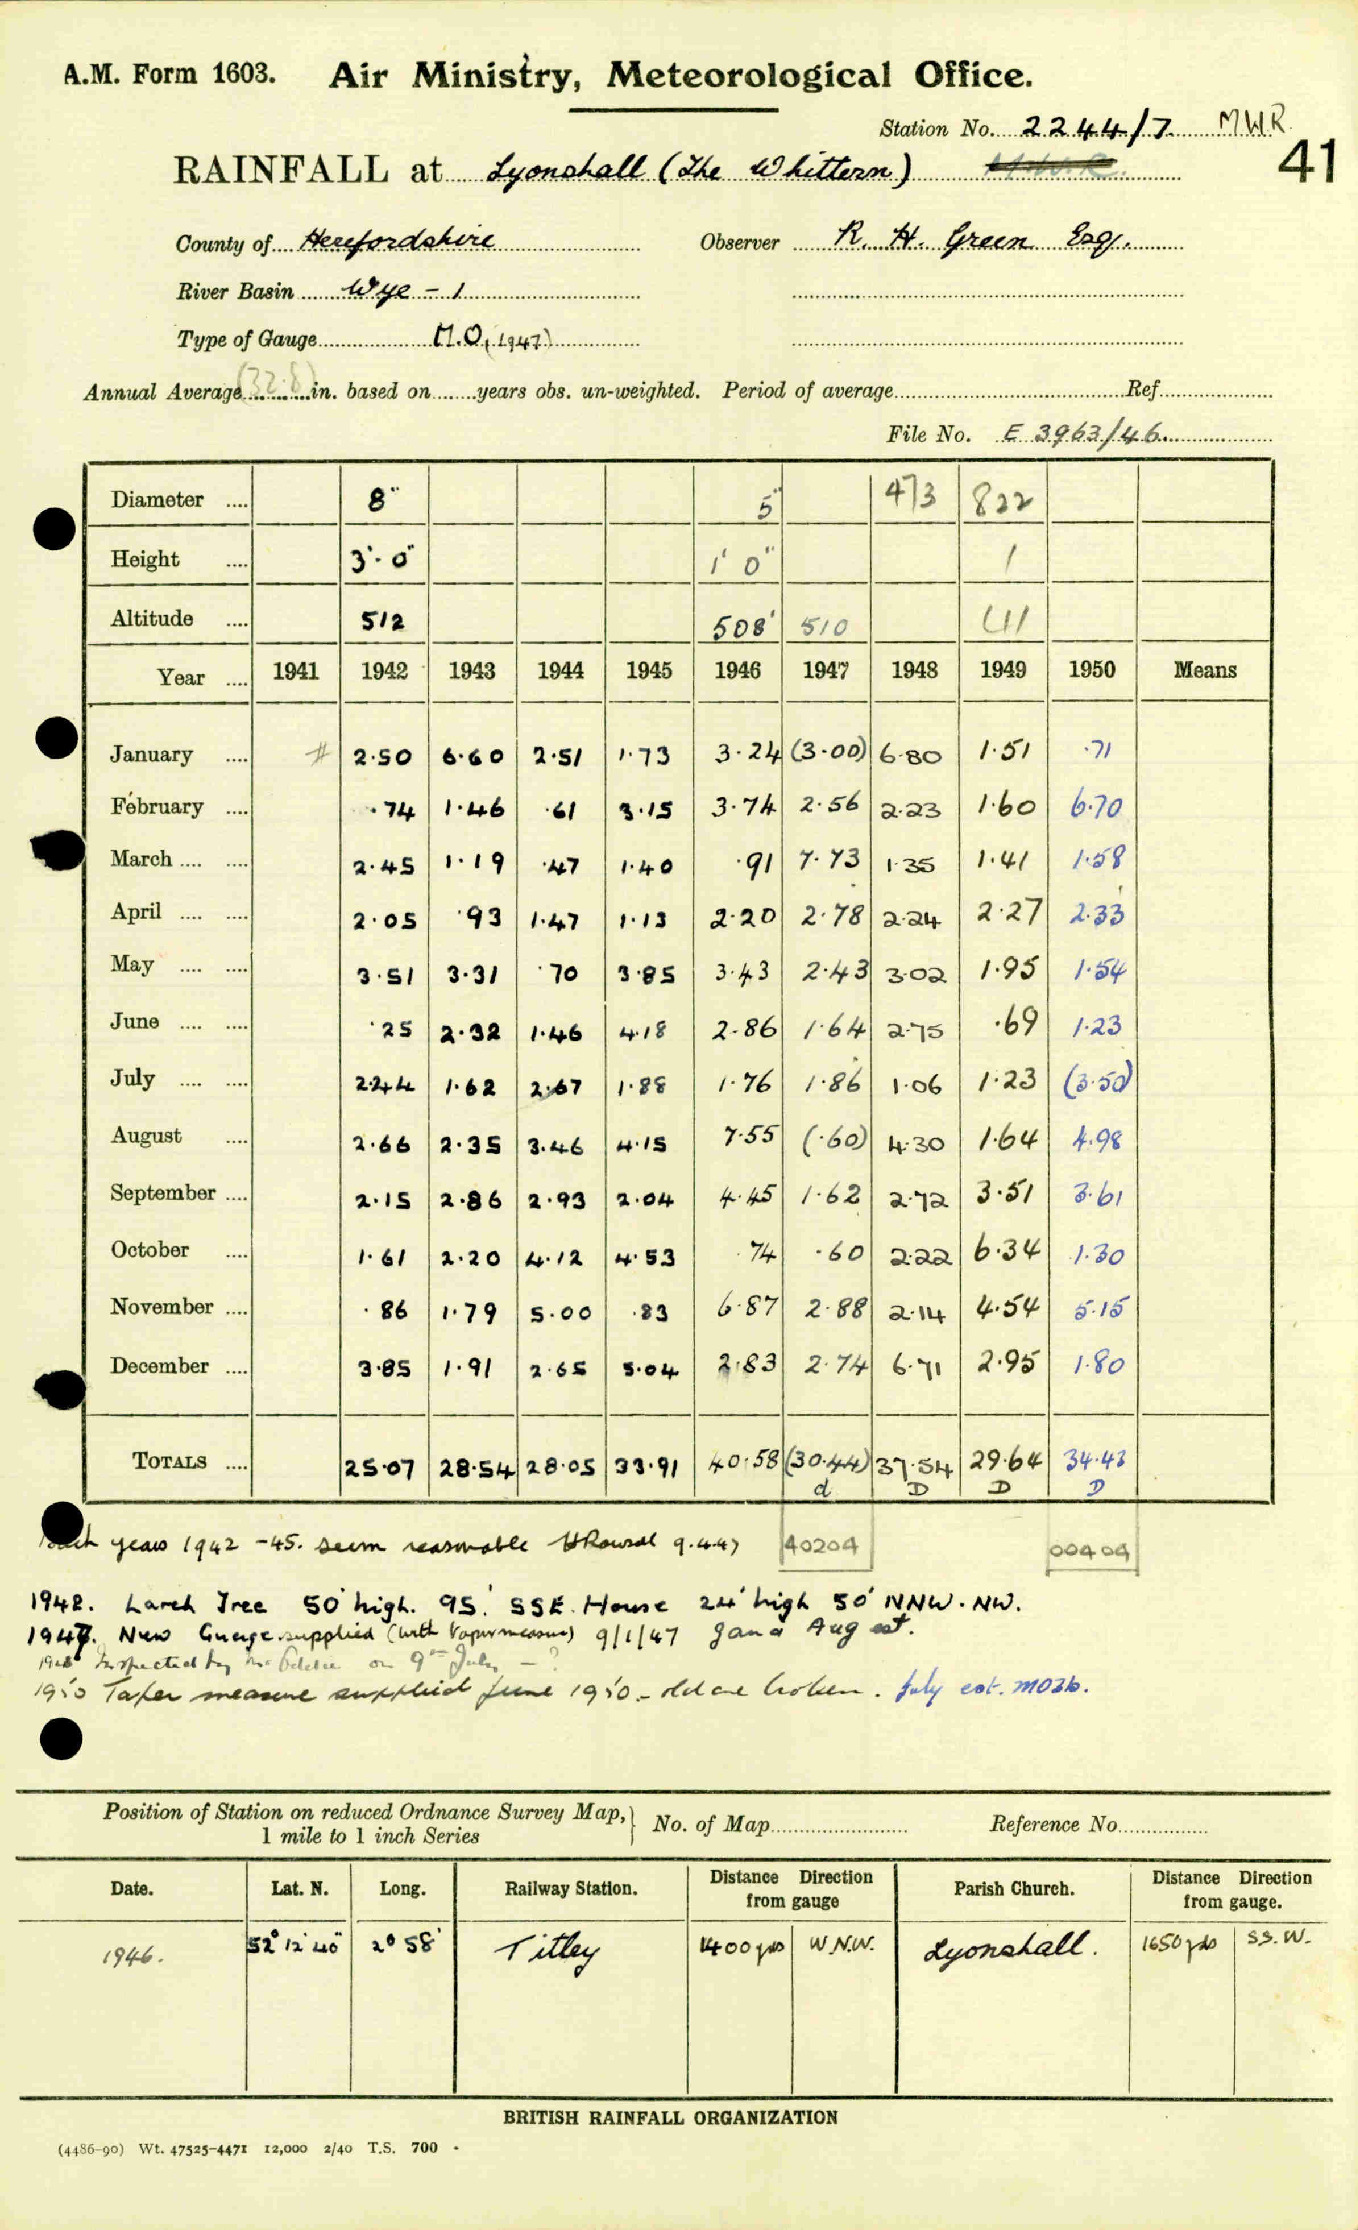 A.M. Form 1603. Air Ministry, Meteorological Office.
Station No. 2244/7 MWR
41
RAINFALL at Lyonshall (The Whittern)
County of Herefordshire Observer R. H. Green Esq.
River Basin Wye - 1
Type of Gauge M.O. (1947)
Annual Average (32.8) in. based on years obs. un-weighted. Period of average Ref.
File No. E 3963/46
Diameter .... 8" 5" 473 822
Height .... 3'-0" 1' 0" 1
Altitude .... 512 508' 510
Year .... 1941 1942 1943 1944 1945 1946 1947 1948 1949 1950 Means
January .... # 2.50 6.60 2.51 1.73 3.24 (3.00) 6.80 1.51 .71
February .... .74 1.46 .61 3.15 3.74 2.56 2.23 1.60 6.70
March .... .... 2.45 1.19 .47 1.40 .91 7.73 1.35 1.41 1.58
April .... .... 2.05 .93 1.47 1.13 2.20 2.78 2.24 2.27 2.33
May .... .... 3.51 3.31 .70 3.85 3.43 2.43 3.02 1.95 1.54
June .... .... .25 2.32 1.46 4.18 2.86 1.64 2.75 .69 1.23
July .... .... 2.44 1.62 2.67 1.88 1.76 1.86 1.06 1.23 (3.50)
August .... 2.66 2.35 3.46 4.15 7.55 (.60) 4.30 1.64 4.98
September .... 2.15 2.86 2.93 2.04 4.45 1.62 2.72 3.51 3.61
October .... 1.61 2.20 4.12 4.53 .74 .60 2.22 6.34 1.30
November .... .86 1.79 5.00 .83 6.87 2.88 2.14 4.54 5.15
December .... 3.85 1.91 2.65 5.04 2.83 2.74 6.71 2.95 1.80
TOTALS .... 25.07 28.54 28.05 33.91 40.58 (30.44) 37.54 29.64 34.43
d D D D
years 1942-45. seem reasonable 9.4.47 40204 00404
1942. Larch Tree 50' high. 95' SSE. House 24' high 50' NNW-NW.
1947. New Guage supplied (with taper measure) 9/1/47 Jan & Aug est.
1948 Inspected by on 9th July - ?
1950 Taper measure supplied June 1950 - old one broken. July est. MO3b.
Position of Station on reduced Ordnance Survey Map, 1 mile to 1 inch Series } No. of Map Reference No
Date. Lat. N. Long. Railway Station. Distance Direction from gauge Parish Church. Distance Direction from gauge.
1946. 52° 12' 40" 2° 58' Titley 1400 yds W.N.W. Lyonshall. 1650 yds S.S.W.
BRITISH RAINFALL ORGANIZATION
(4486-90) Wt. 47525-4471 12,000 2/40 T.S. 700